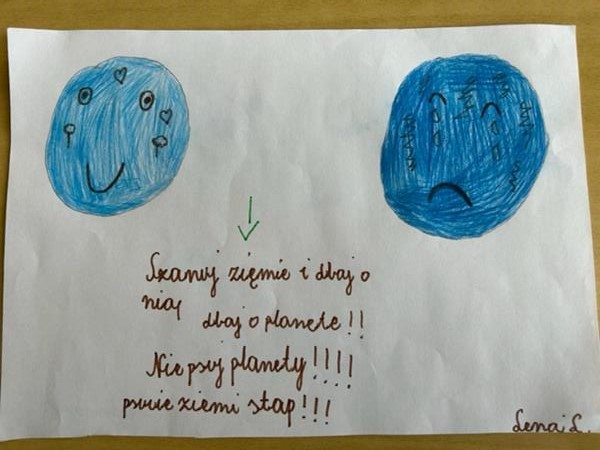 Szanuj zięmie i dbaj o
nią
dbaj o planete!!
Nie psuj planety!!!!
psucie ziemi stap!!!
Lena Ł.